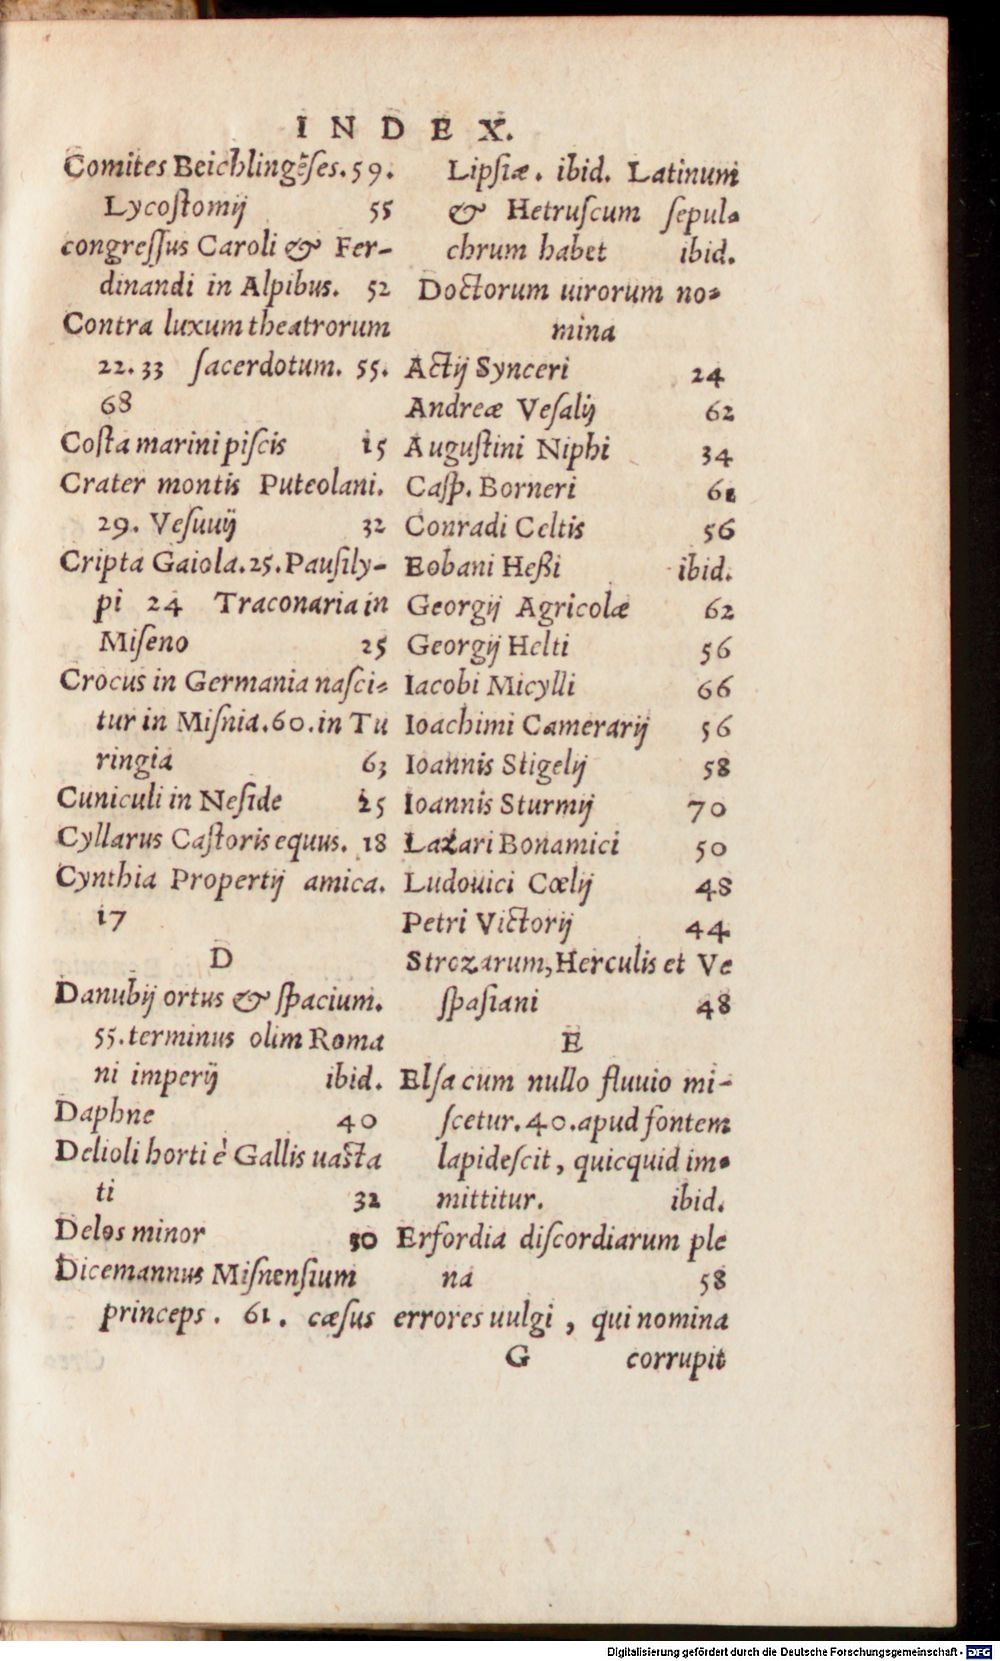 INDEX.
Comites Beichlingẽſes. 59.
Lycoſtomij 55
congreſſus Caroli & Fer-
dinandi in Alpibus. 52
Contra luxum theatrorum
22. 33 ſacerdotum. 55.
68
Coſta marini piſcis 15
Crater montis Puteolani.
29. Veſuuij 32
Cripta Gaiola. 25. Pauſily-
pi 24 Traconaria in
Miſeno 25
Crocus in Germania naſci-
tur in Miſnia. 60. in Tu
ringia 63
Cuniculi in Neſide 25
Cyllarus Caſtoris equus. 18
Cynthia Propertij amica.
17
D
Danubij ortus & ſpacium.
55. terminus olim Roma
ni imperij ibid.
Daphne 40
Delioli horti è Gallis uaſta
ti 32
Delos minor 50
Dicemannus Miſnenſium
princeps. 61. cæſus
Lipſiæ. ibid. Latinum
& Hetruſcum ſepul-
chrum habet ibid.
Doctorum uirorum no-
mina
Actij Synceri 24
Andreæ Veſalij 62
Auguſtini Niphi 34
Caſp. Borneri 61
Conradi Celtis 56
Eobani Heßi ibid.
Georgij Agricolæ 62
Georgij Helti 56
Iacobi Micylli 66
Ioachimi Camerarij 56
Ioannis Stigelij 58
Ioannis Sturmij 70
Lazari Bonamici 50
Ludouici Cœlij 48
Petri Victorij 44
Strozarum, Herculis et Ve
ſpaſiani 48
E
Elſa cum nullo fluuio mi-
ſcetur. 40. apud fontem
lapideſcit, quicquid im-
mittitur. ibid.
Erfordia diſcordiarum ple
na 58
errores uulgi, qui nomina
G corrupit
Digitalisierung gefördert durch die Deutsche Forschungsgemeinschaft - DFG